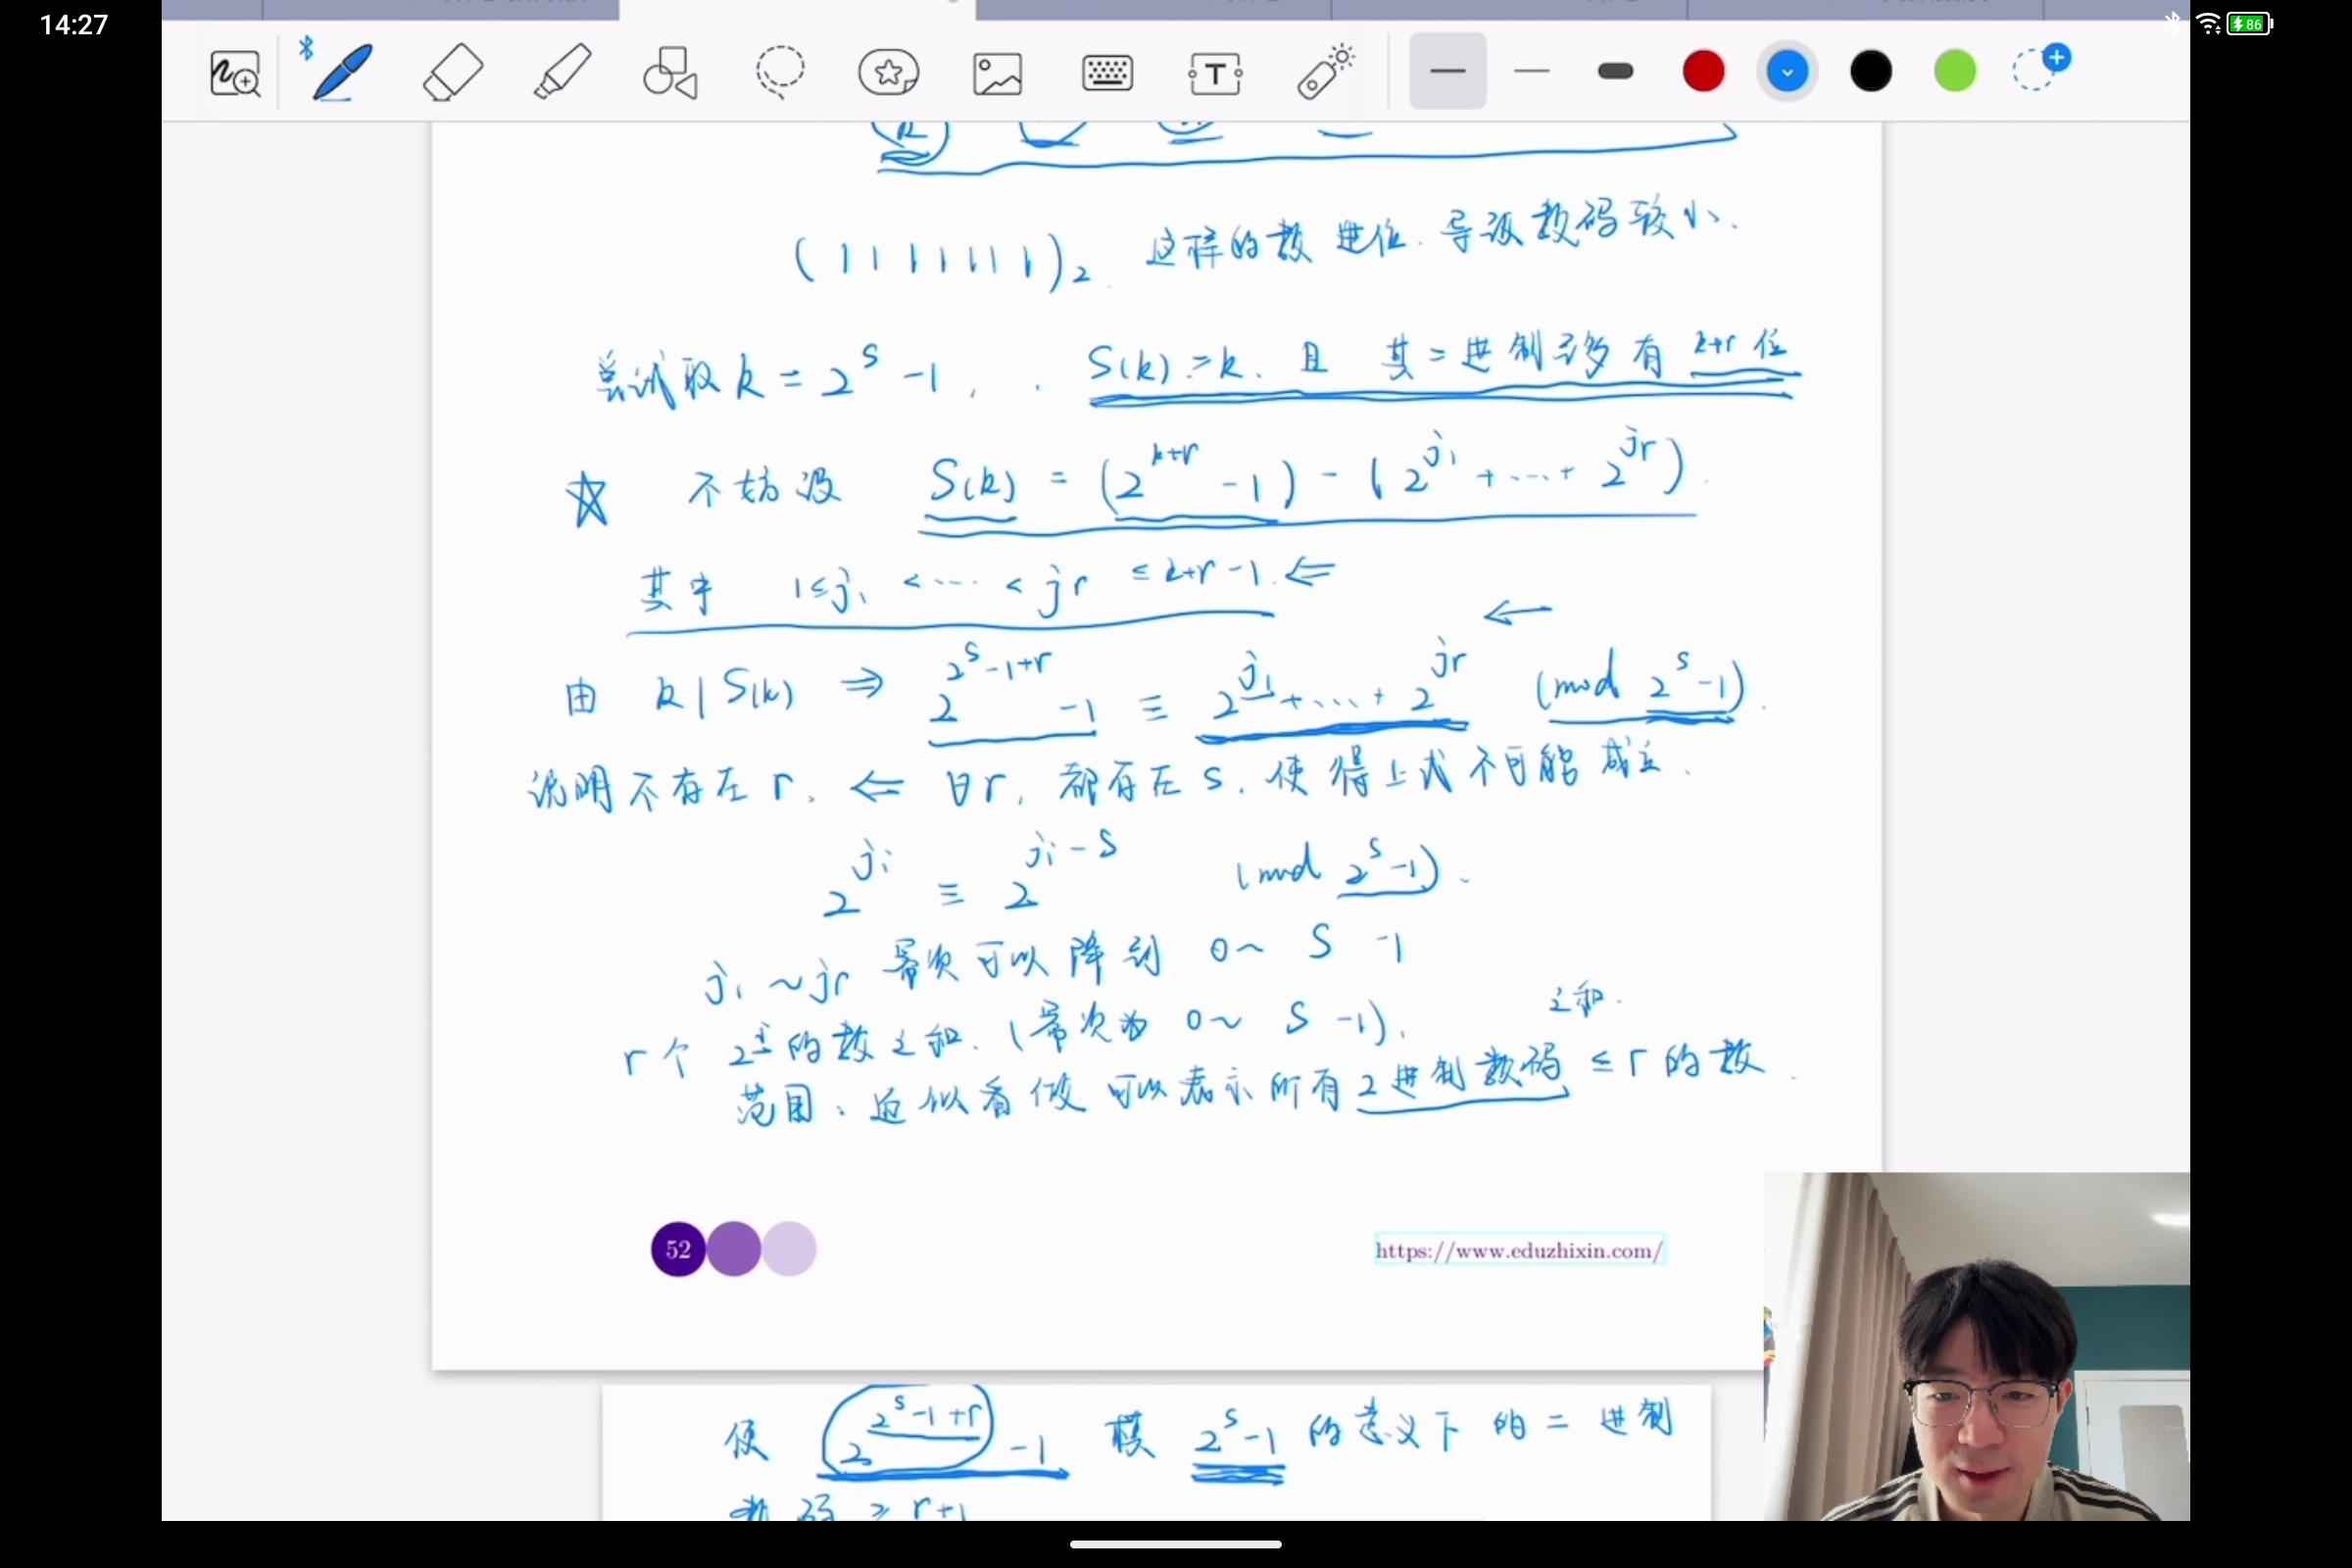 14:27
86
T
(1111111)₂ 这样的数进位. 导致数码较小.
尝试取 k = 2^s - 1, . S(k) ≥ k. 且 其二进制至多有 k+r 位
☆ 不妨设 S(k) = (2^{k+r} - 1) - (2^{j_1} + ... + 2^{j_r}).
其中 1 ≤ j_1 < ... < j_r ≤ k+r-1. ⇐
←
由 k | S(k) ⇒ 2^{2^s-1+r} - 1 ≡ 2^{j_1} + ... + 2^{j_r} (mod 2^s - 1).
说明不存在 r. ⇐ ∀r, 都存在 s. 使得上式不可能成立.
2^{j_i} ≡ 2^{j_i-s} (mod 2^s - 1).
j_1 ~ j_r 幂次可以降到 0 ~ s - 1
r 个 2^i 的数之和. (幂次为 0 ~ s - 1).
之和.
范围: 近似看做 可以表示所有 2进制数码 ≤ r 的数.
52
https://www.eduzhixin.com/
使 2^{2^s-1+r} - 1 模 2^s - 1 的意义下的二进制
数码 ≥ r+1